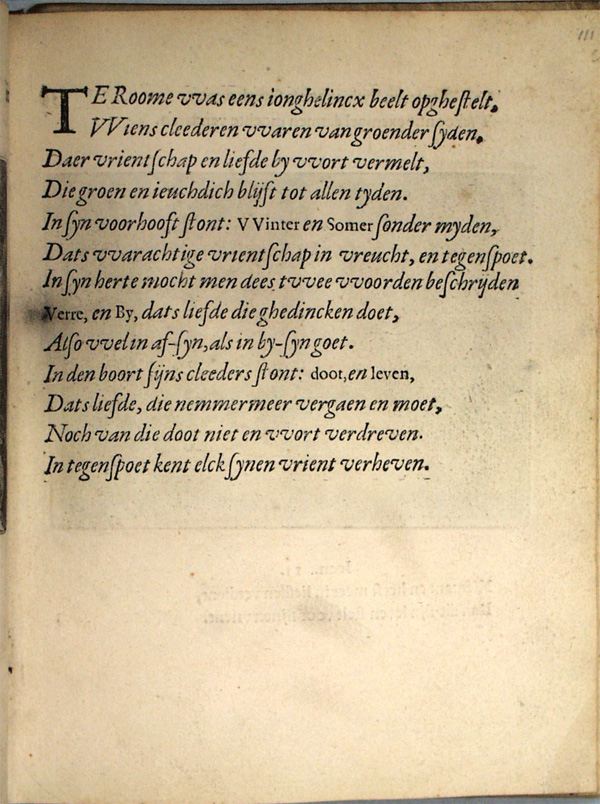 111
TE Roome vvas eens ionghelincx beelt opghestelt,
VViens cleederen vvaren van groender syden,
Daer vrientschap en liefde by vvort vermelt,
Die groen en ieuchdich blijft tot allen tyden.
In syn voorhooft stont: VVinter en Somer sonder myden,
Dats vvarachtige vrientschap in vreucht, en tegenspoet.
In syn herte mocht men dees tvvee vvoorden beschrijden
Verre, en By, dats liefde die ghedincken doet,
Also vvel in af-syn, als in by-syn goet.
In den boort sijns cleeders stont: doot, en leven,
Dats liefde, die nemmermeer vergaen en moet,
Noch van die doot niet en vvort verdreven.
In tegenspoet kent elck synen vrient verheven.